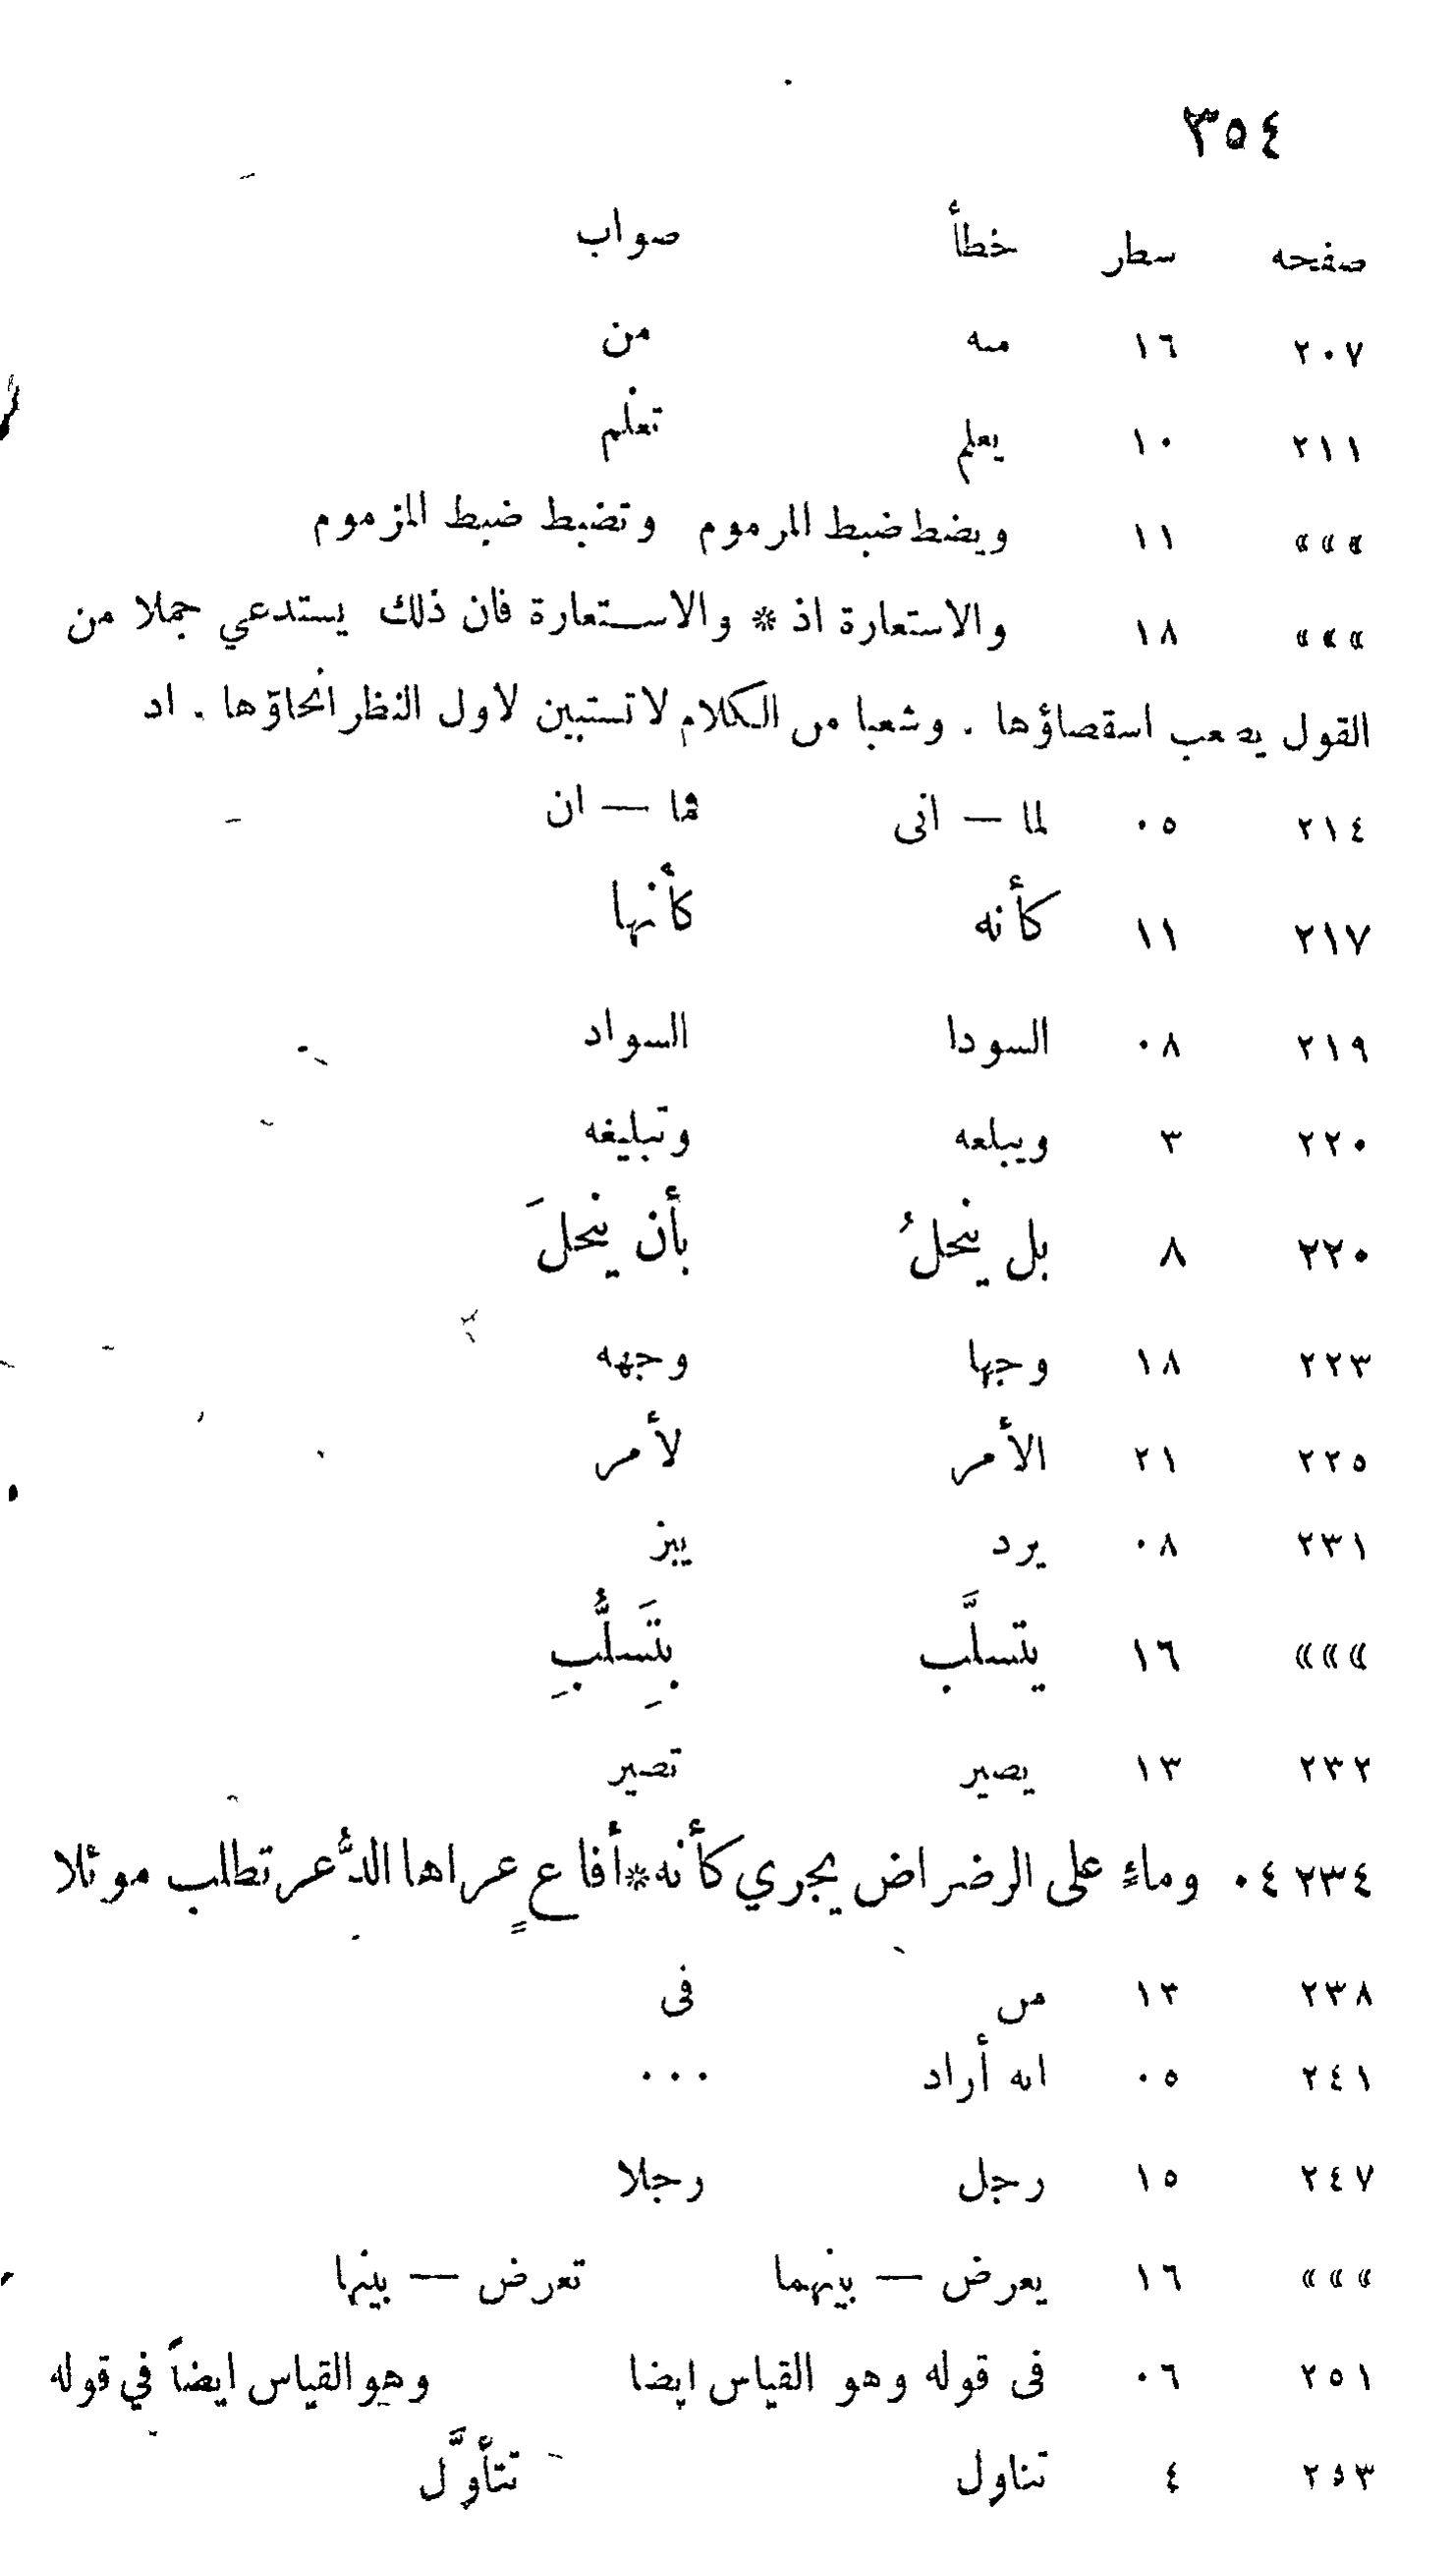 ٣٥٤
صفحه سطر خطأ صواب
٢٠٧ ١٦ مىه من
٢١١ ١٠ يعلم تعلم
»»» ١١ ويضط ضبط المرموم وتضبط ضبط المزموم
»»» ١٨ والاستعارة اذ * والاستعارة فان ذلك يستدعي جملا من
القول يصعب اسقصاؤها . وشعبا من الكلام لا تستبين لاول النظر انحاؤها . اد
٢١٤ ٠٥ لما — انى فما — ان
٢١٧ ١١ كأنه كأنها
٢١٩ ٠٨ السودا السواد
٢٢٠ ٣ ويبلعه وتبليغه
٢٢٠ ٨ بل ينحلُ بأن ينحلَ
٢٢٣ ١٨ وجها وجهه
٢٢٥ ٢١ الأمر لأمر
٢٣١ ٠٨ يرد يبز
»»» ١٦ يتسلَّب بِتَسلُّبِ
٢٣٢ ١٣ يصير تصير
٢٣٤ ٠٤ وماءٍ على الرضراض يجري كأنه*أفاعٍ عراها الذُّعر تطلب موئلا
٢٣٨ ١٣ من فى
٢٤١ ٠٥ انه أراد ...
٢٤٧ ١٥ رجل رجلا
»»» ١٦ يعرض — بينهما تعرض — بينها
٢٥١ ٠٦ فى قوله وهو القياس ايضا وهو القياس ايضاً في قوله
٢٥٣ ٤ تناول تتأوَّل